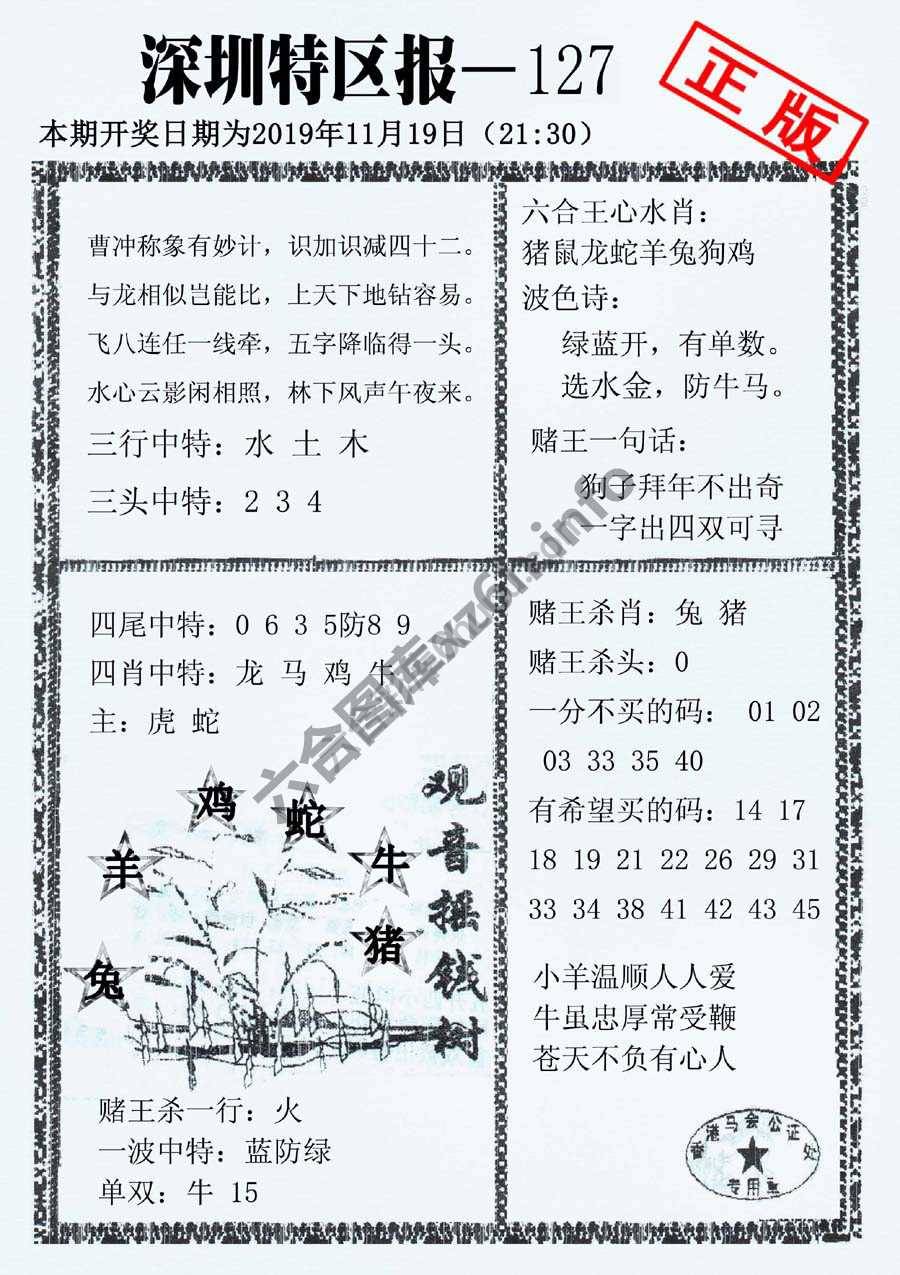 深圳特区报—127
正版
本期开奖日期为2019年11月19日（21:30）
曹冲称象有妙计，识加识减四十二。
与龙相似岂能比，上天下地钻容易。
飞八连任一线牵，五字降临得一头。
水心云影闲相照，林下风声午夜来。
三行中特：水 土 木
三头中特：2 3 4
六合王心水肖：
猪鼠龙蛇羊兔狗鸡
波色诗：
绿蓝开，有单数。
选水金，防牛马。
赌王一句话：
狗子拜年不出奇
一字出四双可寻
四尾中特：0 6 3 5防8 9
四肖中特：龙 马 鸡 牛
主：虎 蛇
鸡
蛇
羊
牛
猪
兔
观音摇钱树
赌王杀一行：火
一波中特：蓝防绿
单双：牛 15
赌王杀肖：兔 猪
赌王杀头：0
一分不买的码： 01 02
03 33 35 40
有希望买的码：14 17
18 19 21 22 26 29 31
33 34 38 41 42 43 45
小羊温顺人人爱
牛虽忠厚常受鞭
苍天不负有心人
香港马会公证处
专用章
六合图库xz6h.info